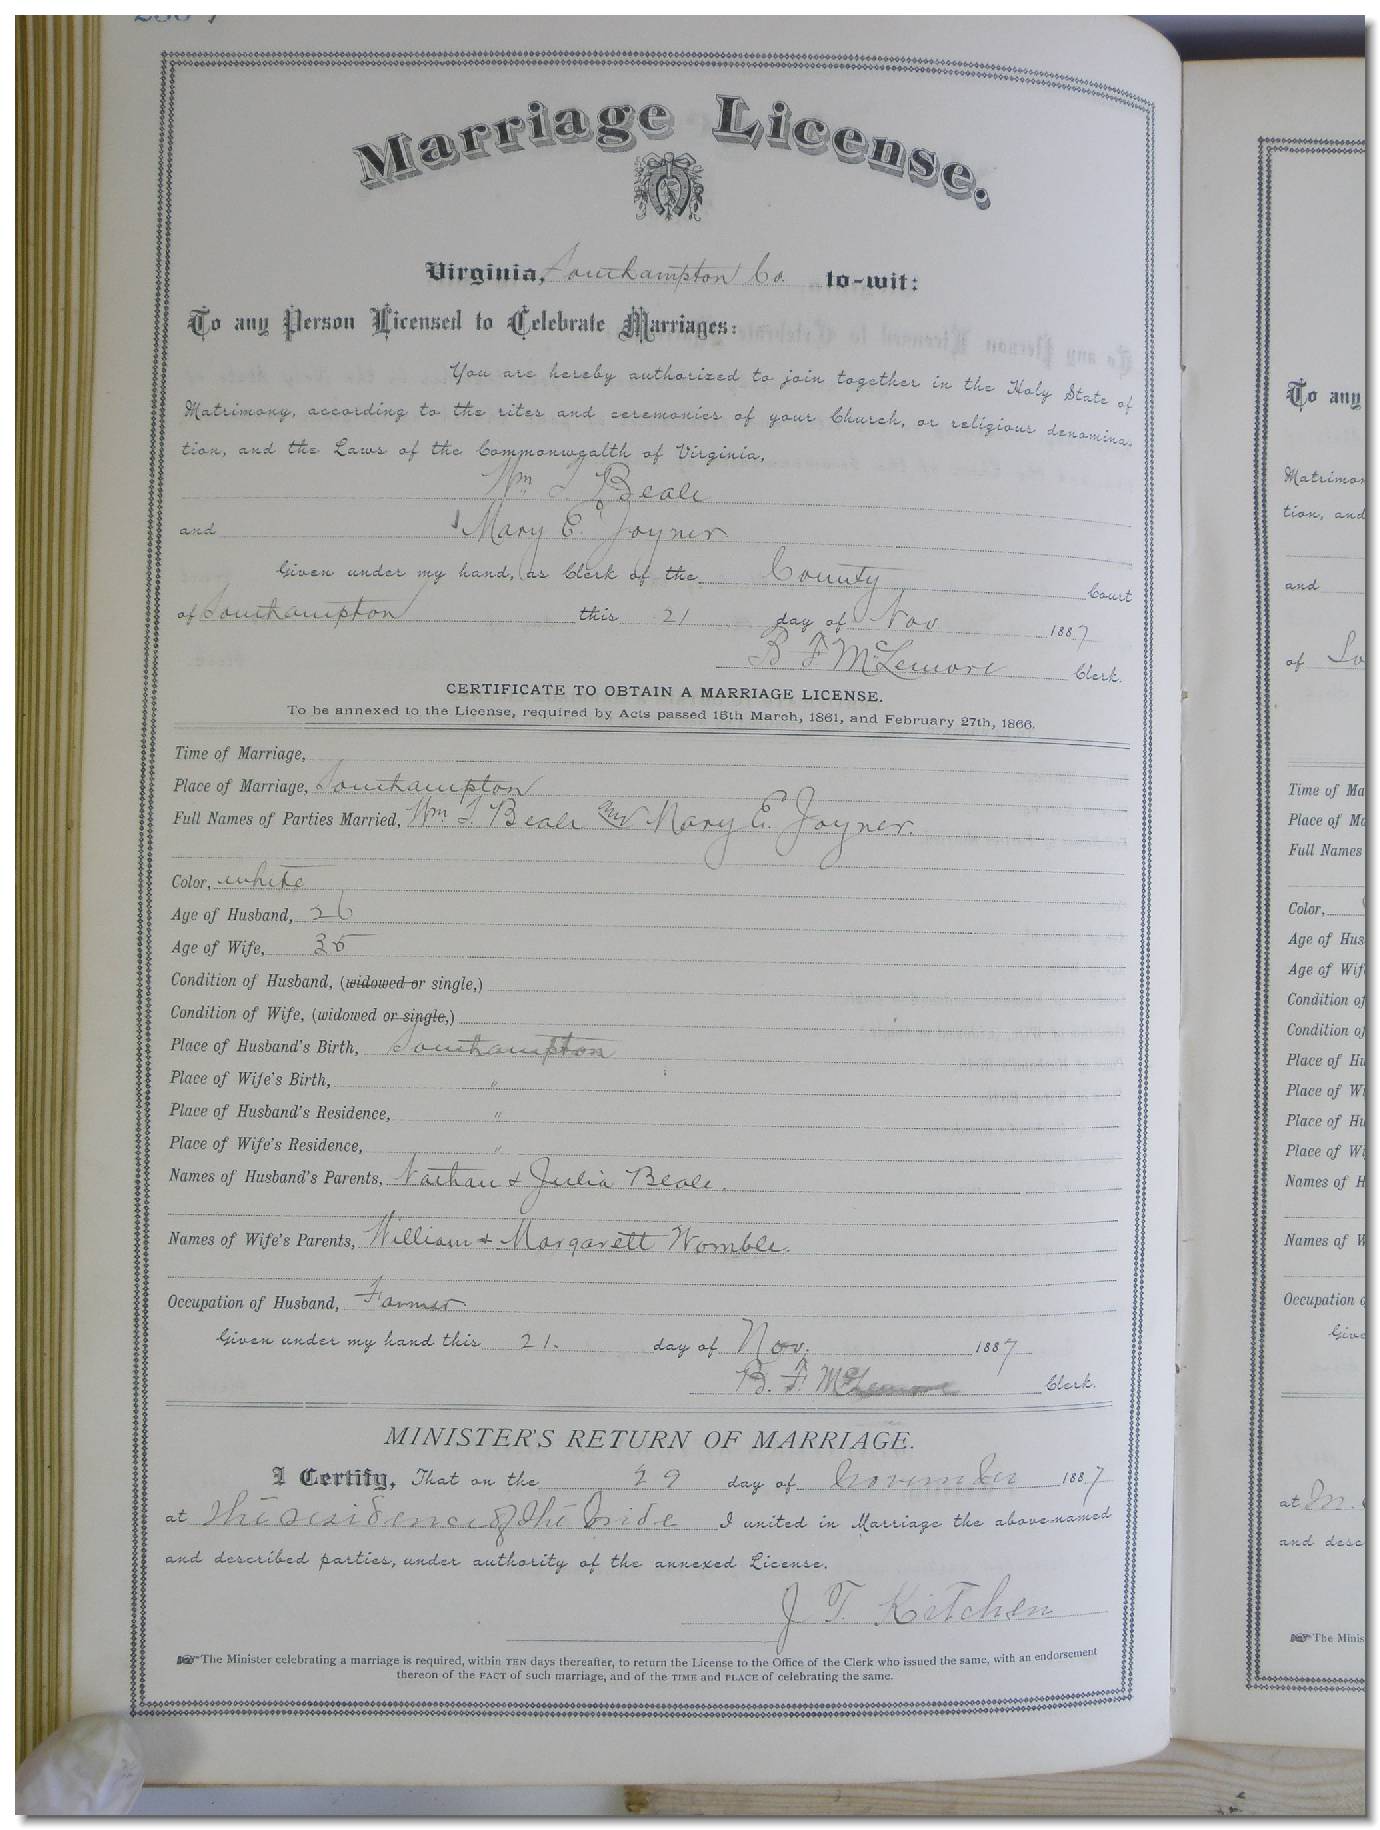 Marriage License.
Virginia, Southampton Co. to-wit:
To any Person Licensed to Celebrate Marriages:
You are hereby authorized to join together in the Holy State of
Matrimony, according to the rites and ceremonies of your Church, or religious denomina-
tion, and the Laws of the Commonwealth of Virginia,
Wm T Beale
and Mary E. Joyner
Given under my hand, as Clerk of the County Court
of Southampton this 21 day of Nov 1887
B F McLemore Clerk.
CERTIFICATE TO OBTAIN A MARRIAGE LICENSE.
To be annexed to the License, required by Acts passed 16th March, 1861, and February 27th, 1866.
Time of Marriage,
Place of Marriage, Southampton
Full Names of Parties Married, Wm T. Beale and Mary E. Joyner.
Color, white
Age of Husband, 26
Age of Wife, 35
Condition of Husband, (widowed or single,)
Condition of Wife, (widowed or single,)
Place of Husband's Birth, Southampton
Place of Wife's Birth, "
Place of Husband's Residence, "
Place of Wife's Residence, "
Names of Husband's Parents, Nathan & Julia Beale.
Names of Wife's Parents, William & Margarett Womble.
Occupation of Husband, Farmer
Given under my hand this 21. day of Nov. 1887
B. F. McLemore Clerk.
MINISTER'S RETURN OF MARRIAGE.
I Certify, That on the 29 day of November 1887
at the residence of the bride I united in Marriage the above-named
and described parties, under authority of the annexed License.
J T. Kitchen
☞ The Minister celebrating a marriage is required, within TEN days thereafter, to return the License to the Office of the Clerk who issued the same, with an endorsement
thereon of the FACT of such marriage, and of the TIME and PLACE of celebrating the same.
To any
Matrimon
tion, and
and
of So
Time of Ma
Place of Ma
Full Names
Color,
Age of Hus
Age of Wif
Condition of
Condition of
Place of Hu
Place of Wi
Place of Hu
Place of Wi
Names of H
Names of W
Occupation o
Give
at M.
and desc
☞ The Minis